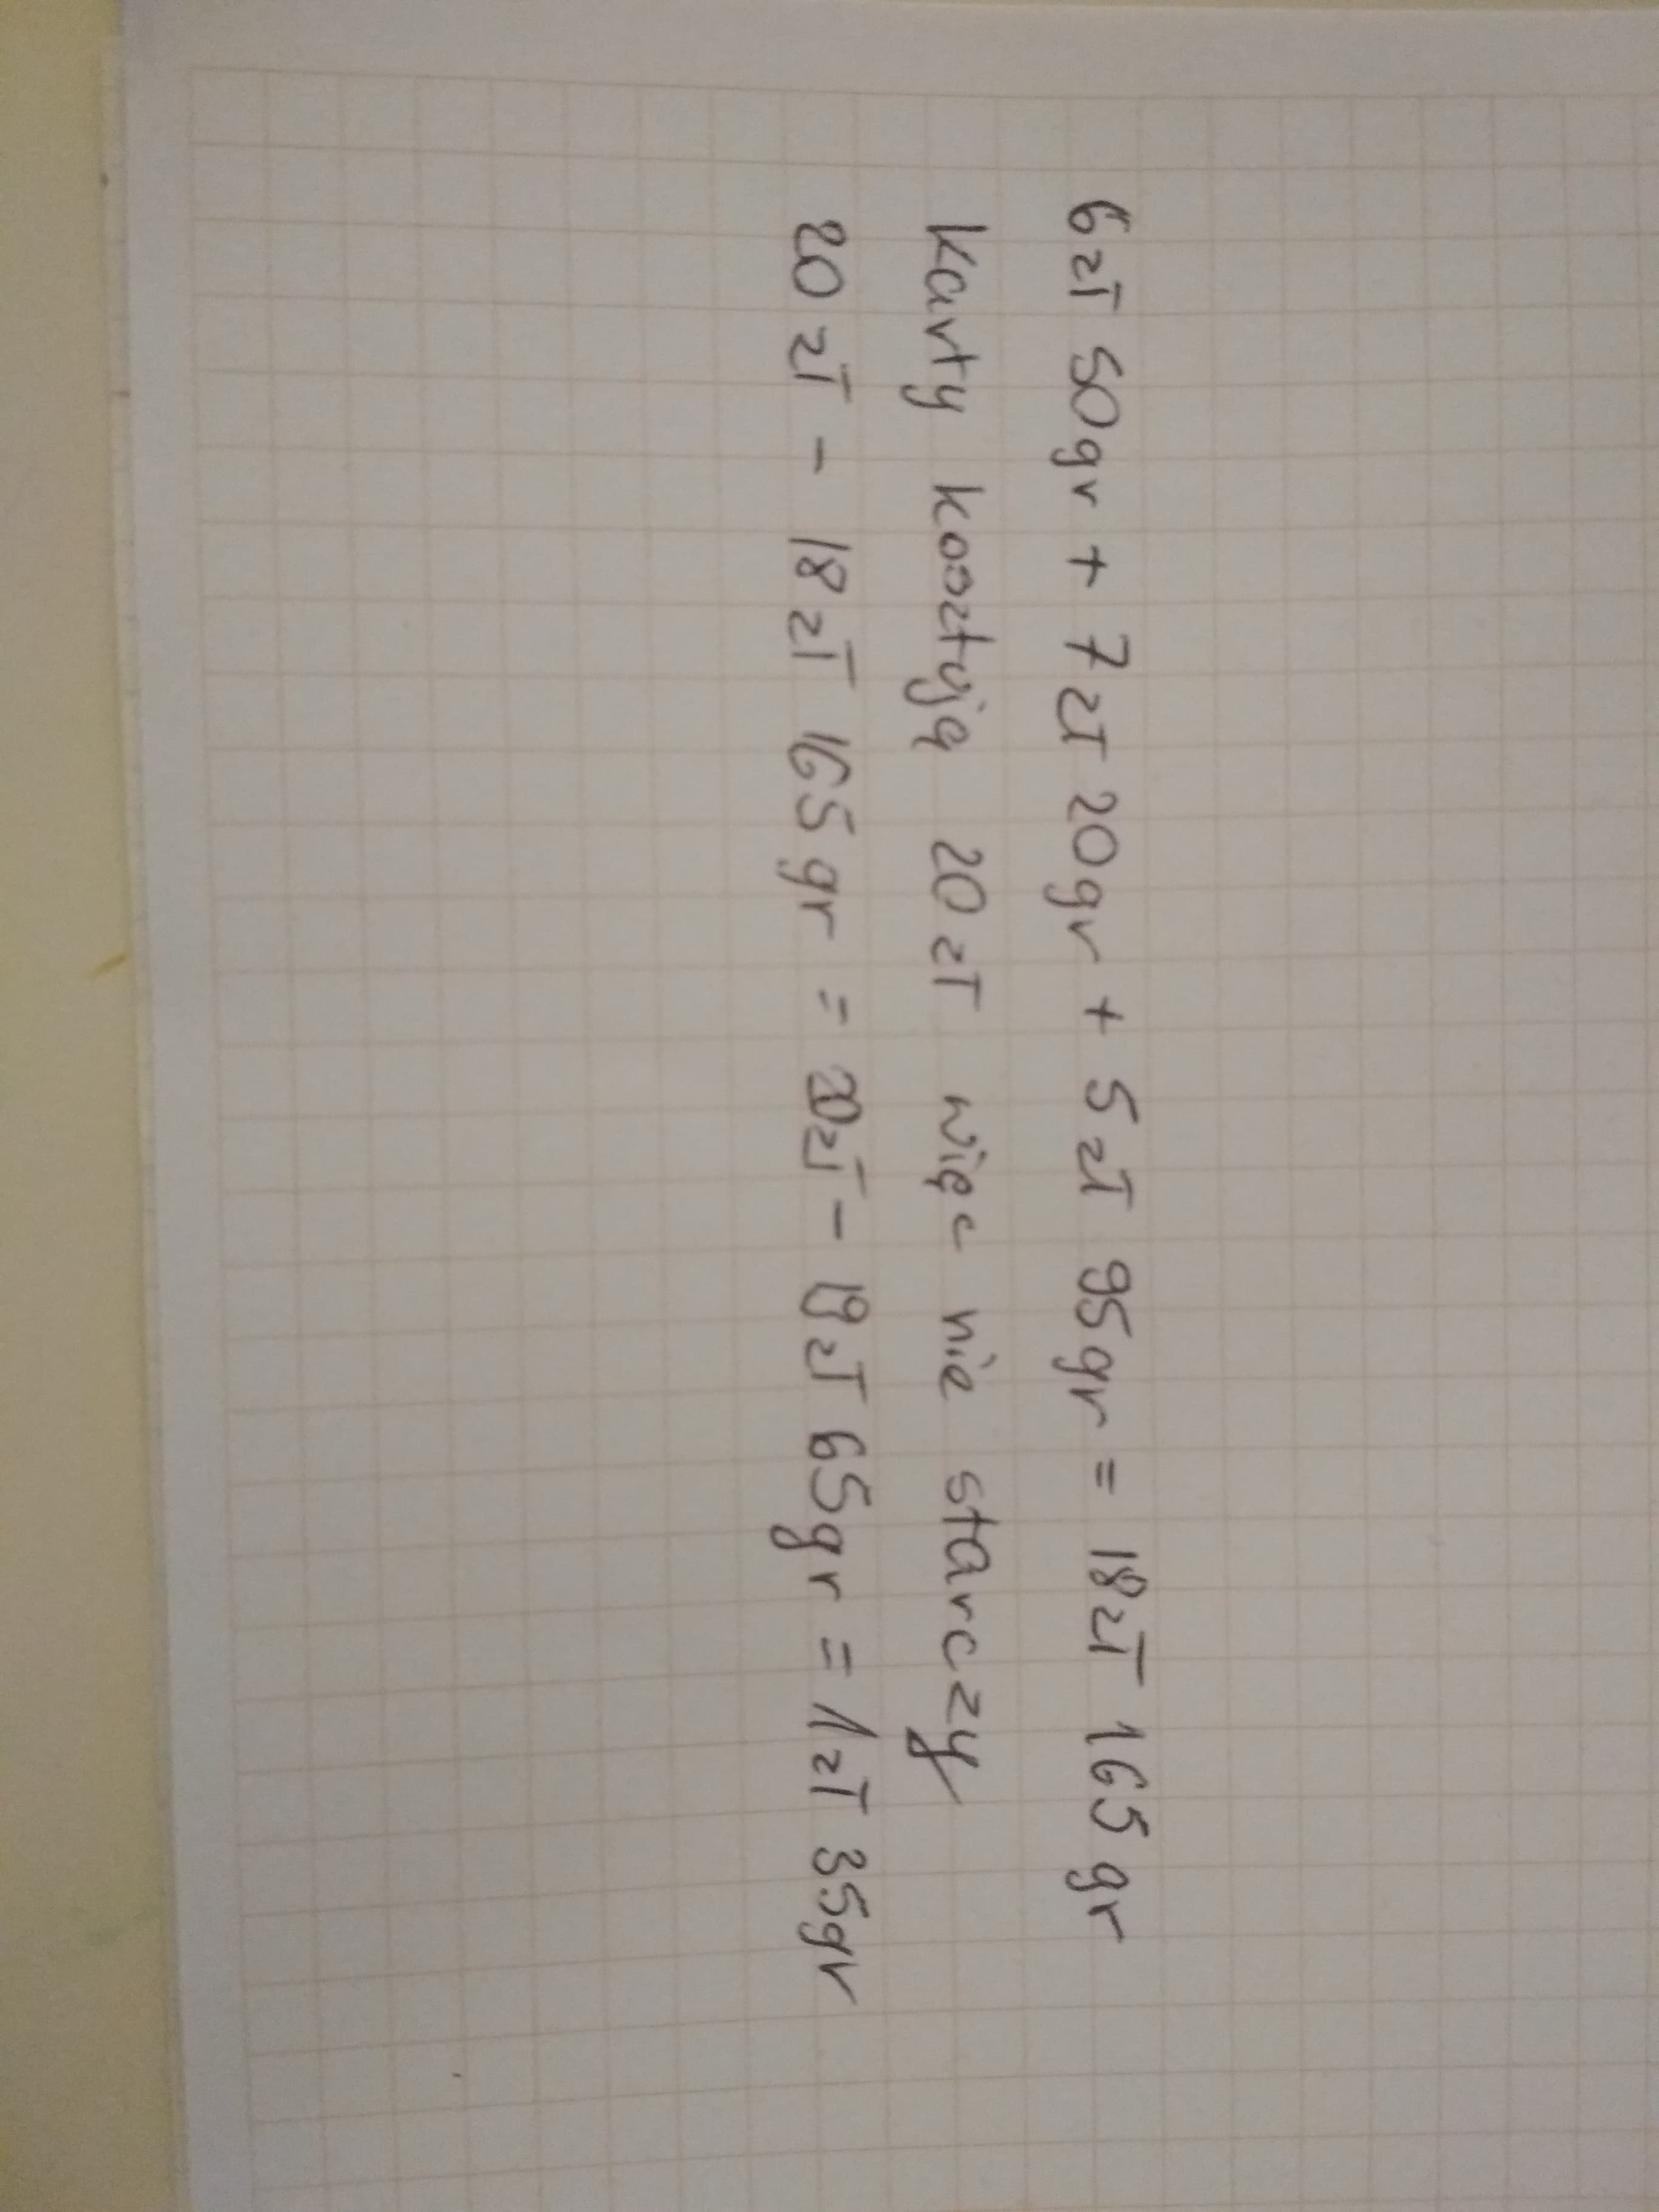 6zł 50gr + 7zł 20gr + 5zł 95gr = 18zł 165gr
Karty kosztują 20zł więc nie starczy
20zł - 18zł 165gr = 20zł - 19zł 65gr = 1zł 35gr